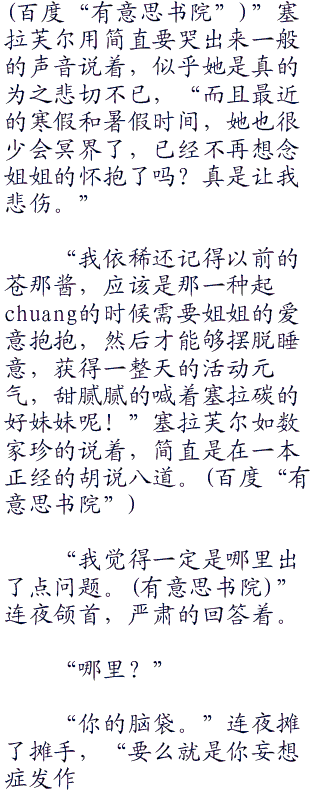 (百度“有意思书院”)”塞
拉芙尔用简直要哭出来一般
的声音说着，似乎她是真的
为之悲切不已，“而且最近
的寒假和暑假时间，她也很
少会冥界了，已经不再想念
姐姐的怀抱了吗？真是让我
悲伤。”
“我依稀还记得以前的
苍那酱，应该是那一种起
chuang的时候需要姐姐的爱
意抱抱，然后才能够摆脱睡
意，获得一整天的活动元
气，甜腻腻的喊着塞拉碳的
好妹妹呢！”塞拉芙尔如数
家珍的说着，简直是在一本
正经的胡说八道。(百度“有
意思书院”)
“我觉得一定是哪里出
了点问题。(有意思书院)”
连夜颌首，严肃的回答着。
“哪里？”
“你的脑袋。”连夜摊
了摊手，“要么就是你妄想
症发作